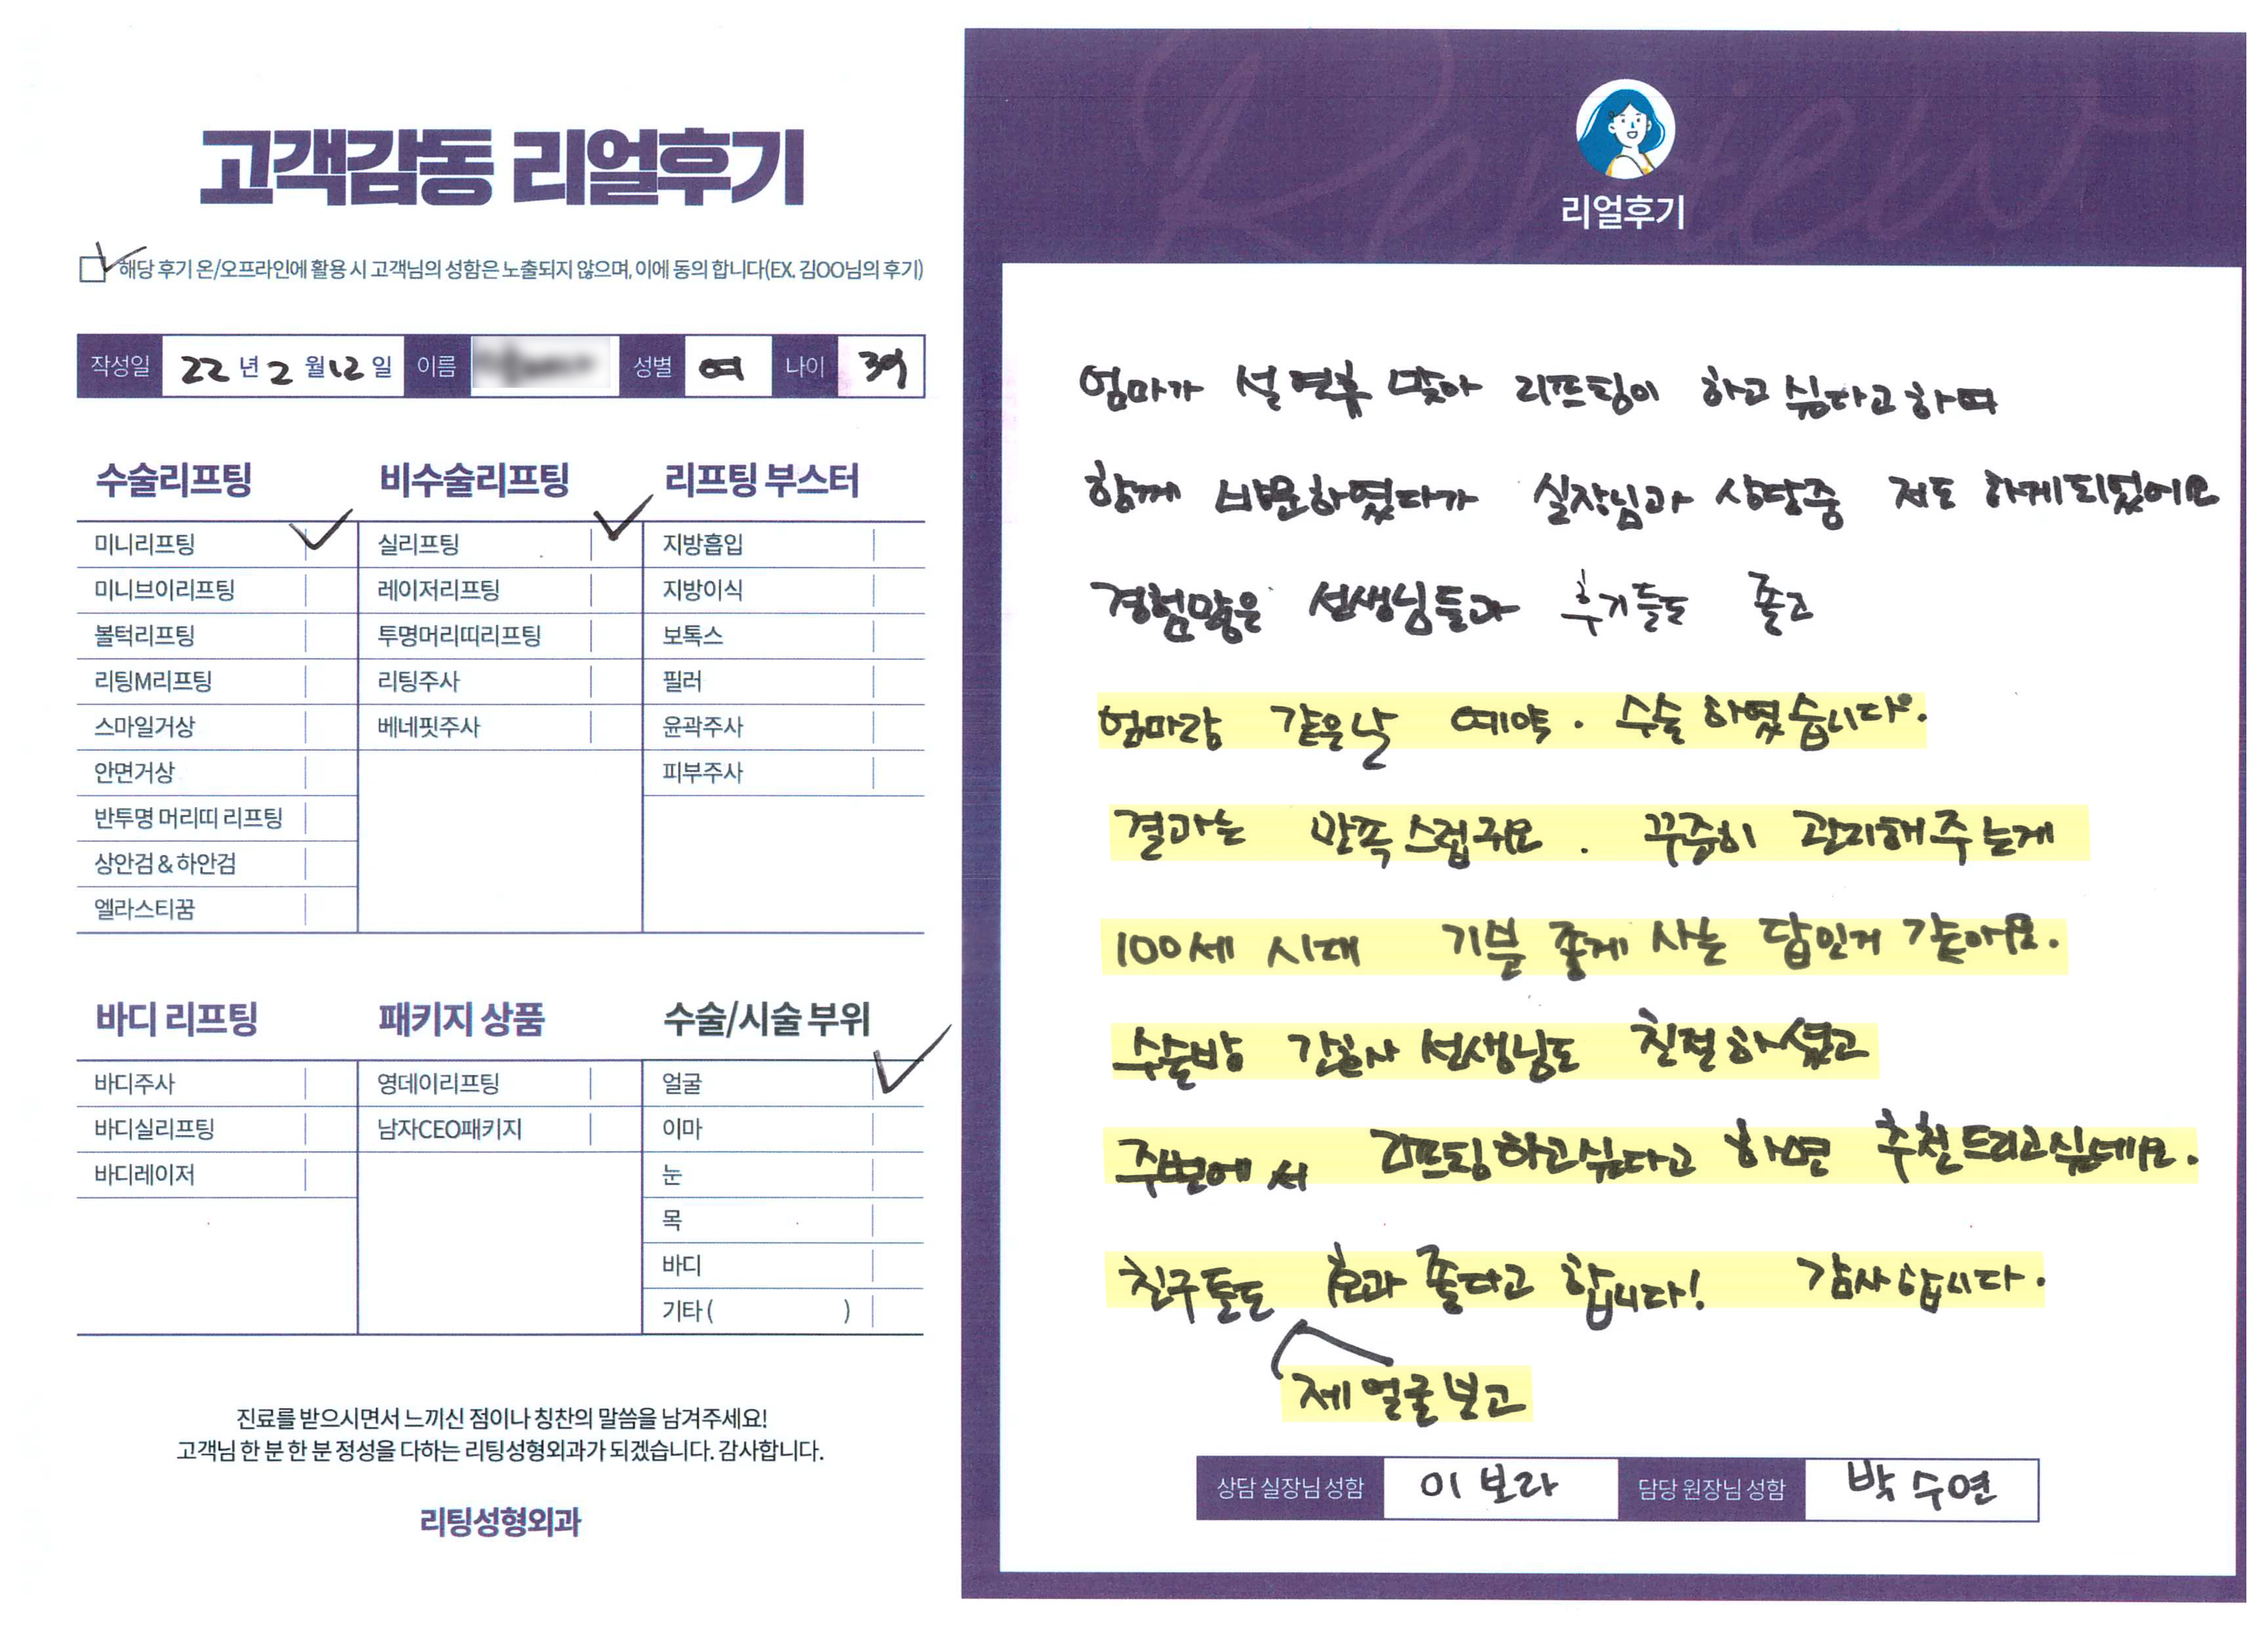 고객감동 리얼후기
해당 후기 온/오프라인에 활용 시 고객님의 성함은 노출되지 않으며, 이에 동의 합니다(EX. 김OO님의 후기)
작성일 22 년 2 월 12 일 이름 성별 여 나이 39
수술리프팅
미니리프팅
미니브이리프팅
볼턱리프팅
리팅M리프팅
스마일거상
안면거상
반투명 머리띠 리프팅
상안검 & 하안검
엘라스티꿈
비수술리프팅
실리프팅
레이저리프팅
투명머리띠리프팅
리팅주사
베네핏주사
리프팅 부스터
지방흡입
지방이식
보톡스
필러
윤곽주사
피부주사
바디 리프팅
바디주사
바디실리프팅
바디레이저
패키지 상품
영데이리프팅
남자CEO패키지
수술/시술 부위
얼굴
이마
눈
목
바디
기타 ( )
진료를 받으시면서 느끼신 점이나 칭찬의 말씀을 남겨주세요!
고객님 한 분 한 분 정성을 다하는 리팅성형외과가 되겠습니다. 감사합니다.
리팅성형외과
Review
리얼후기
엄마가 설 연휴 맞아 리프팅이 하고 싶다고 하며
함께 방문하였다가 실장님과 상담중 저도 하게되었어요
경험많은 선생님들과 후기들도 좋고
엄마랑 같은날 예약. 수술 하였습니다.
결과는 만족스럽구요. 꾸준히 관리해주는게
100세 시대 기분 좋게 사는 답인거 같아요.
수술방 간호사 선생님도 친절하셨고
주변에서 리프팅하고싶다고 하면 추천드리고싶네요.
친구들도 효과 좋다고 합니다! 감사합니다.
제 얼굴보고
상담 실장님 성함 이보라 담당 원장님 성함 박수연